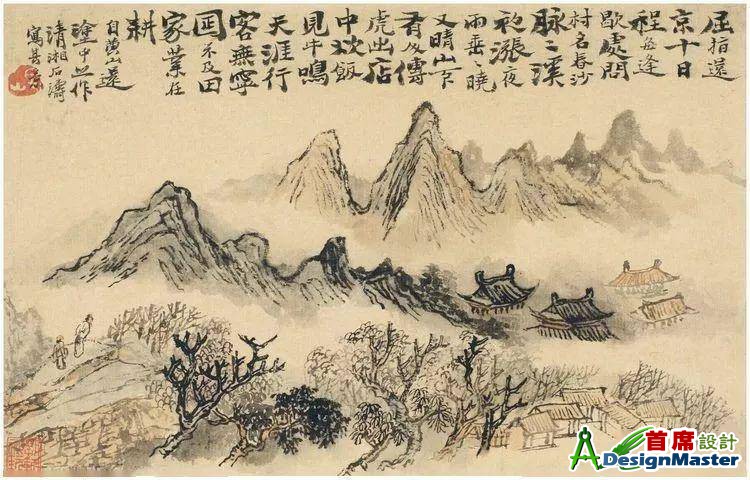 屈指遠
京十日
程每逢
歇處問
村名春沙
脉々溪
初漲夜
雨垂々曉
又晴山下
傳
虎出店
中炊飯
見牛鳴
天涯行
客無寧
不及田
家業在
耕
自黃山還
塗中並作
清湘石濤
寫其
首席設計
DesignMaster